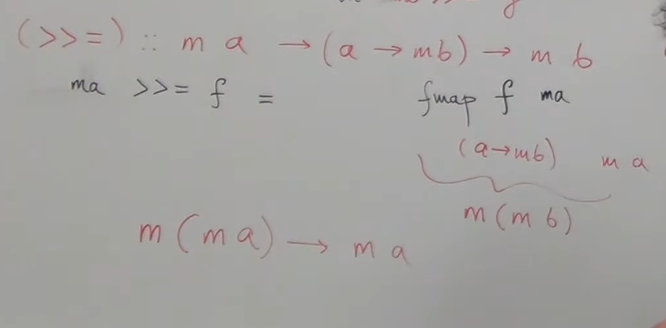 (>>=) :: m a → (a → mb) → m b
ma >>= f = fmap f ma
(a→mb) m a
m(mb)
m(ma) → ma